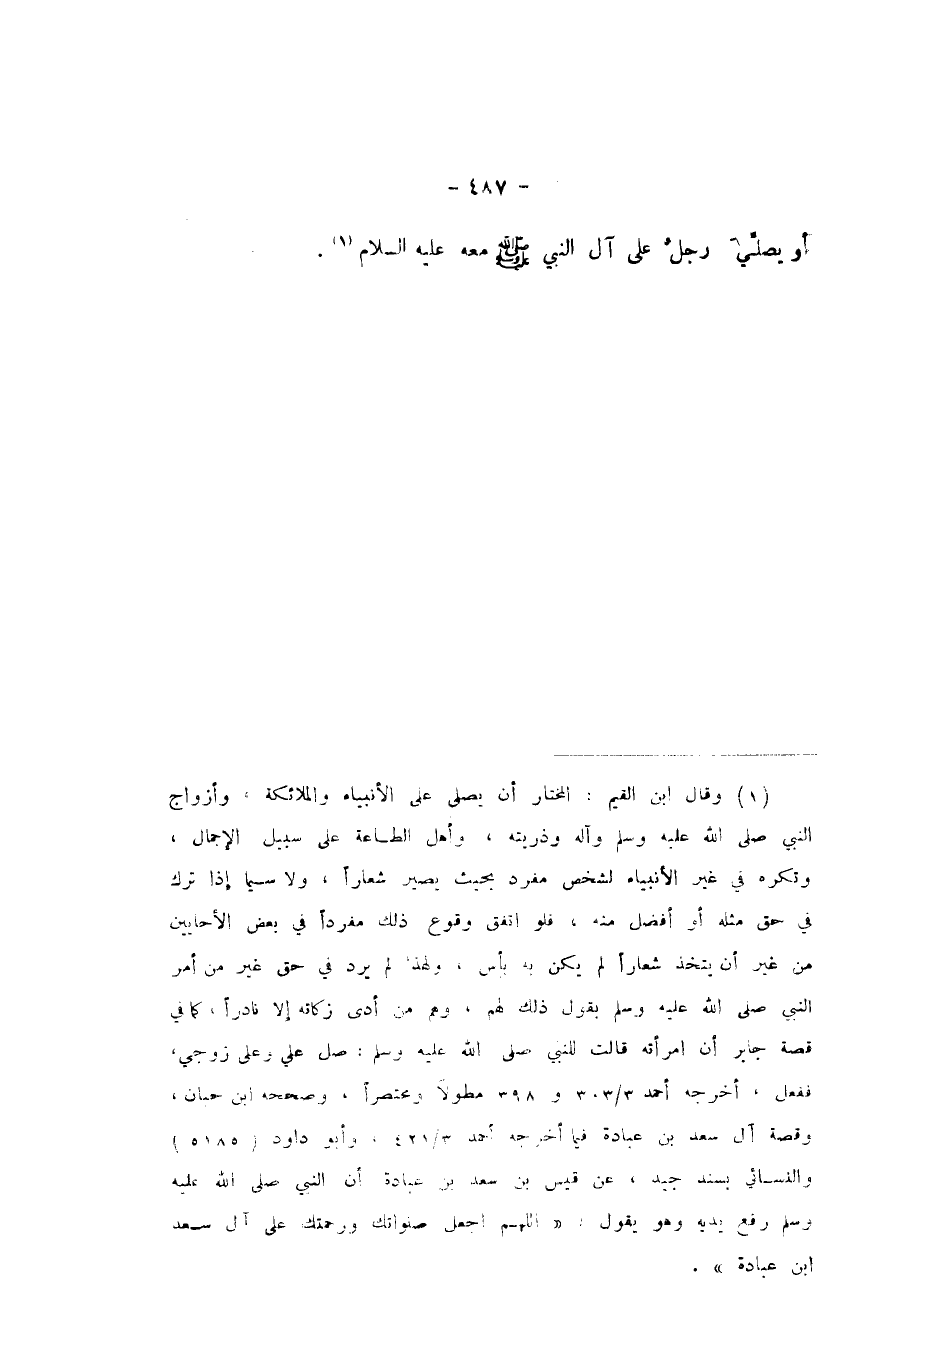 - ٤٨٧ -
أو يصلّيَ رجلٌ على آل النبي ﷺ معه عليه السلام (١) .
(١) وقال ابن القيم : المختار أن يصلى على الأنبياء والملائكة ، وأزواج
النبي صلى الله عليه وسلم وآله وذريته ، وأهل الطاعة على سبيل الإجمال ،
وتكره في غير الأنبياء لشخص مفرد بحيث يصير شعاراً ، ولا سيما إذا ترك
في حق مثله أو أفضل منه ، فلو اتفق وقوع ذلك مفرداً في بعض الأحايين
من غير أن يتخذ شعاراً لم يكن به بأس ، ولهذا لم يرد في حق غير من أمر
النبي صلى الله عليه وسلم بقول ذلك لهم ، وهم من أدى زكاته إلا نادراً ، كما في
قصة جابر أن امرأته قالت للنبي صلى الله عليه وسلم : صل علي وعلى زوجي ،
ففعل ، أخرجه أحمد ٣٠٣/٣ و ٣٩٨ مطولاً ومختصراً ، وصححه ابن حبان ،
وقصة آل سعد بن عبادة فيما أخرجه أحمد ٤٢١/٣ ، وأبو داود ( ٥١٨٥ )
والنسائي بسند جيد ، عن قيس بن سعد بن عبادة أن النبي صلى الله عليه
وسلم رفع يديه وهو يقول : « اللهم اجعل صلواتك ورحمتك على آل سعد
ابن عبادة » .